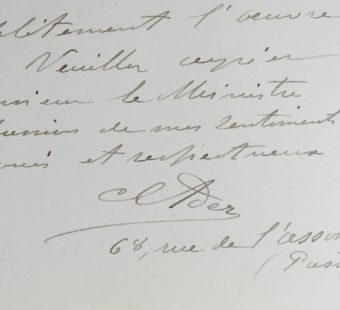 plètement l'œuvre
Veuillez agréer
onsieur le Ministre
de mes sentiments
et respectueux
C Ader
68, rue de l'assom
(Pass